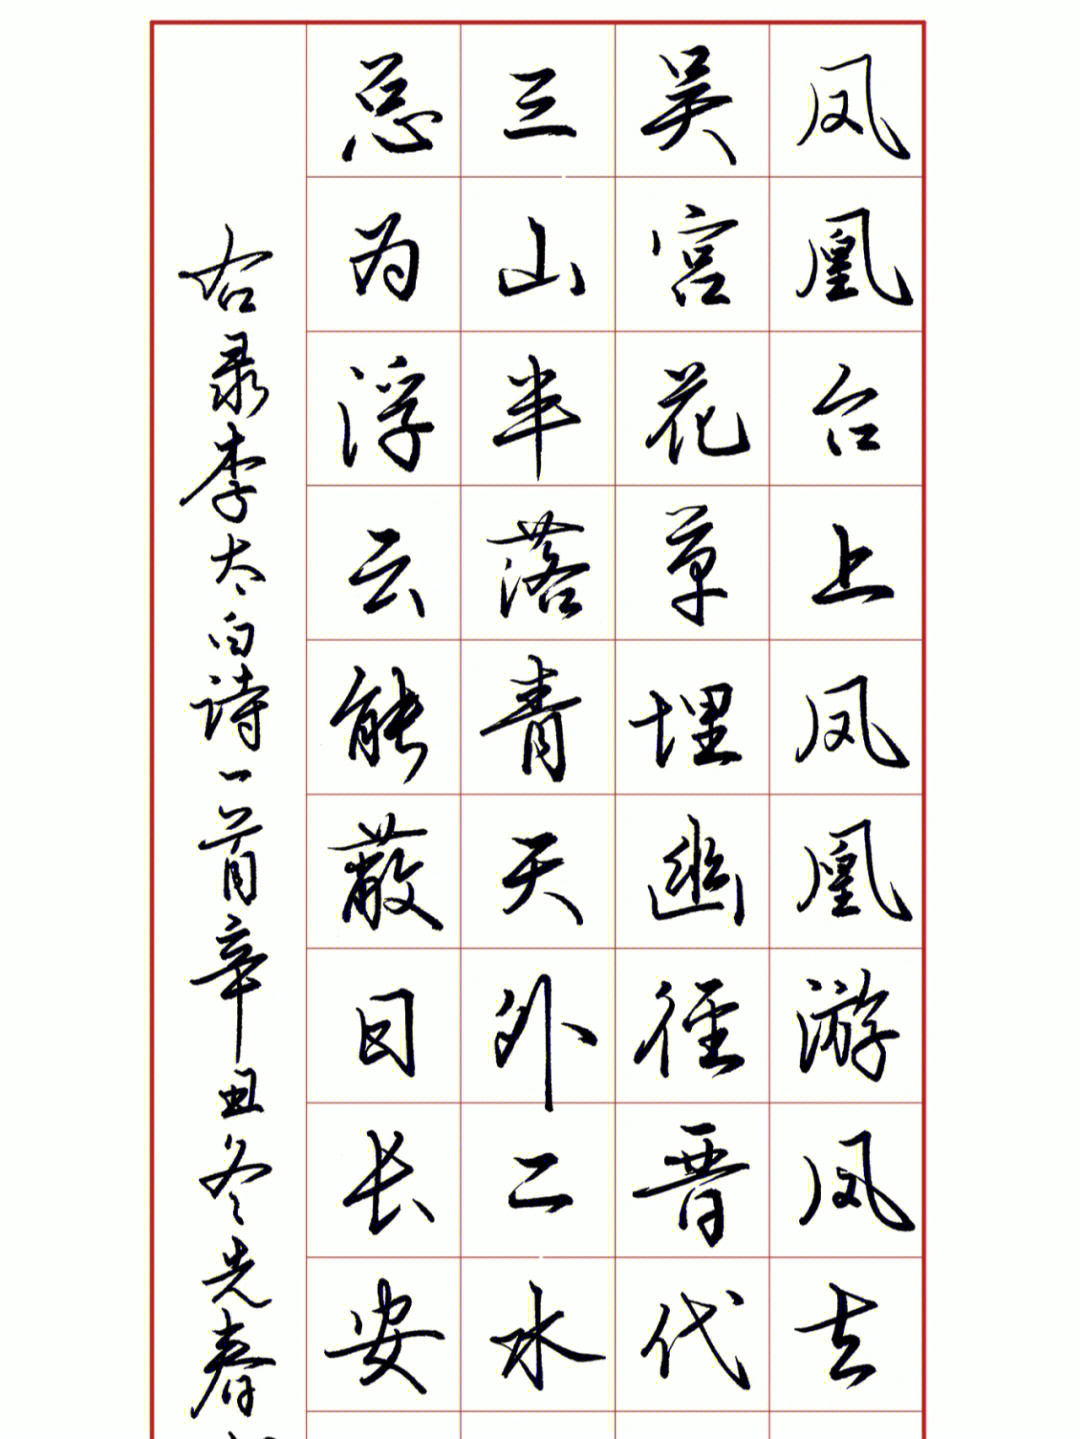 凤凰台上凤凰游凤去
吴宫花草埋幽径晋代
三山半落青天外二水
总为浮云能蔽日长安
右录李太白诗一首辛丑冬先春